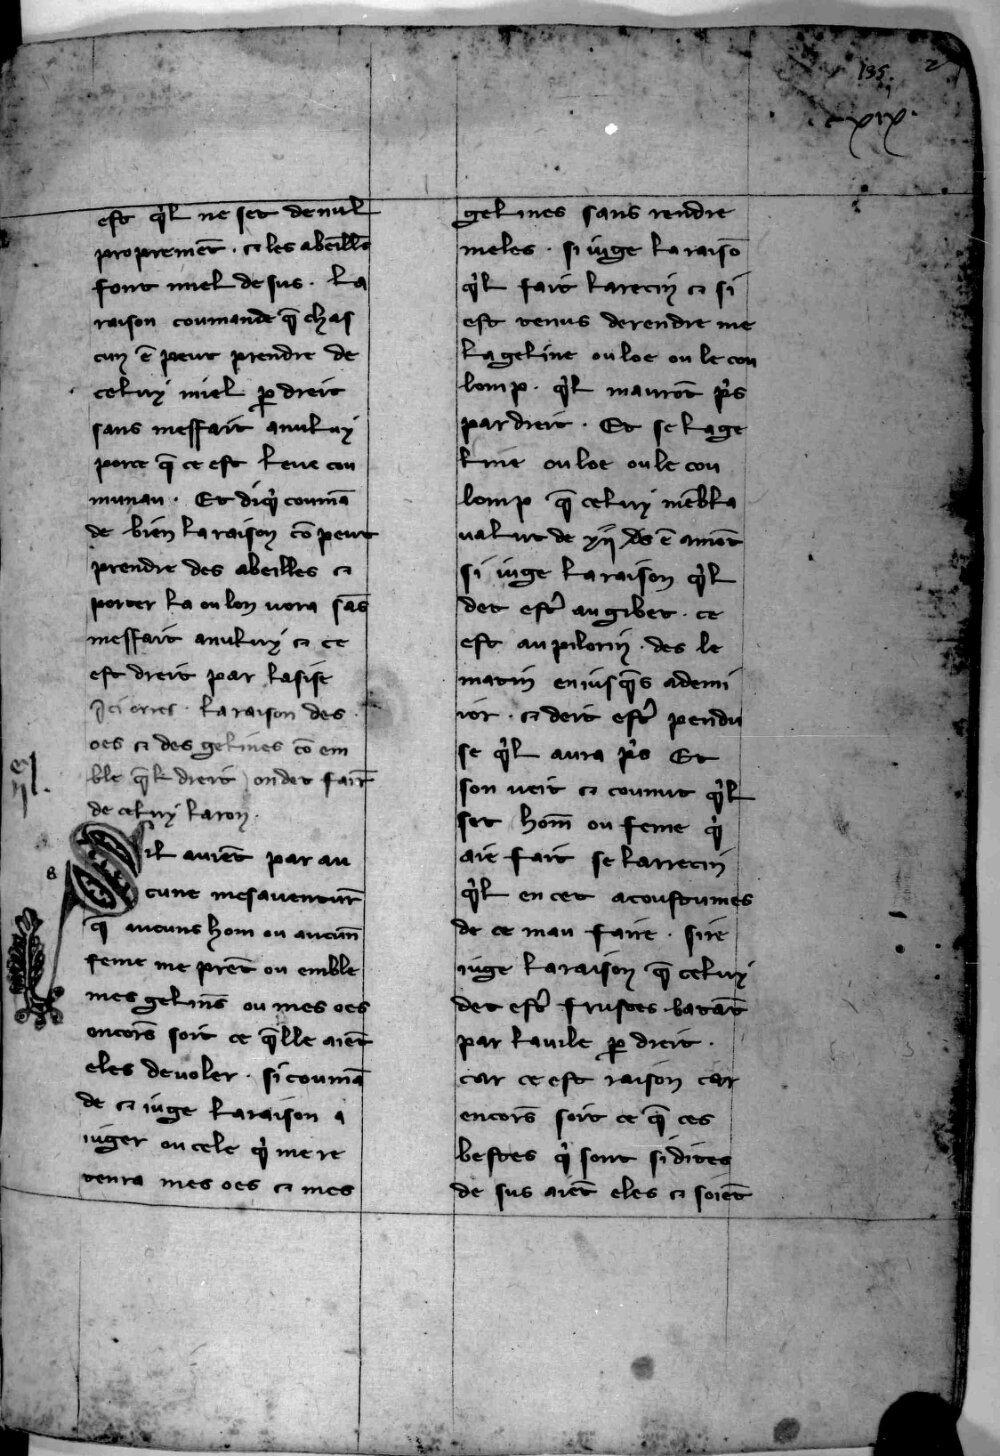 135. 2
cxix.
est q̓l ne set de nul
propremẽt · ⁊ les abeillẽs
font miel de sus · la
raison coumande q̃ chas
cun ẽ peut prendre de
celuy miel ꝑ dreit
sans meffait a nuluy
porce q̃ ce est leue cou
munau · Et diq̓ coumã
de bien la raison cõ peut
prendre des abeilles ⁊
porter la ou lon uora sãs
meffait a nuluy ⁊ ce
est dreit par lasise
Ici orres · la raison des
oes ⁊ des gelines cõ em
ble q̃l dreit on det fair̃
de celuy laron ·
s
Sil auiẽt par au
cune mesauentur̃
q̃ aucuns hom ou aucun̄
feme me prẽt ou emble
mes gelin̄s ou mes oes
oncor̃s soit ce q̃lle aiẽt
eles de uoler · si coumã
de ⁊ iuge la raison a
iuger ou cele q̓ me re
tenra mes oes ⁊ mes
gelines sans rendre
meles · si iuge la raisõ
q̓l fait larecin ⁊ si
est tenus de rendre me
la geline ou loe ou le cou
lomp · q̓l mauront p̓s
par dreit · Et se la ge
line ou loe ou le cou
lomp q̃ celuy mẽbla
ualut de xii ds̄ ẽ amõt
si iuge la raison q̓l
det est̓ au gibet · ce
est au pilorin · des le
matin en iusq̃s a demi
ior · ⁊ deit est̓ pendu
se q̓l aura p̓s Et
son ueit ⁊ counut q̓l
set hom̄ ou feme q̓
aie fait se larrecin
q̓l en cet acoustumes
de ce mau faire · si re
iuge la raison q̃ celuy
det est̓ frustes batãt
par la uile ꝑ dreit ·
car ce est raison car
encor̃s soit ce q̃ ces
bestes q̓ sont si dites
de sus aiẽt eles ⁊ soiẽt